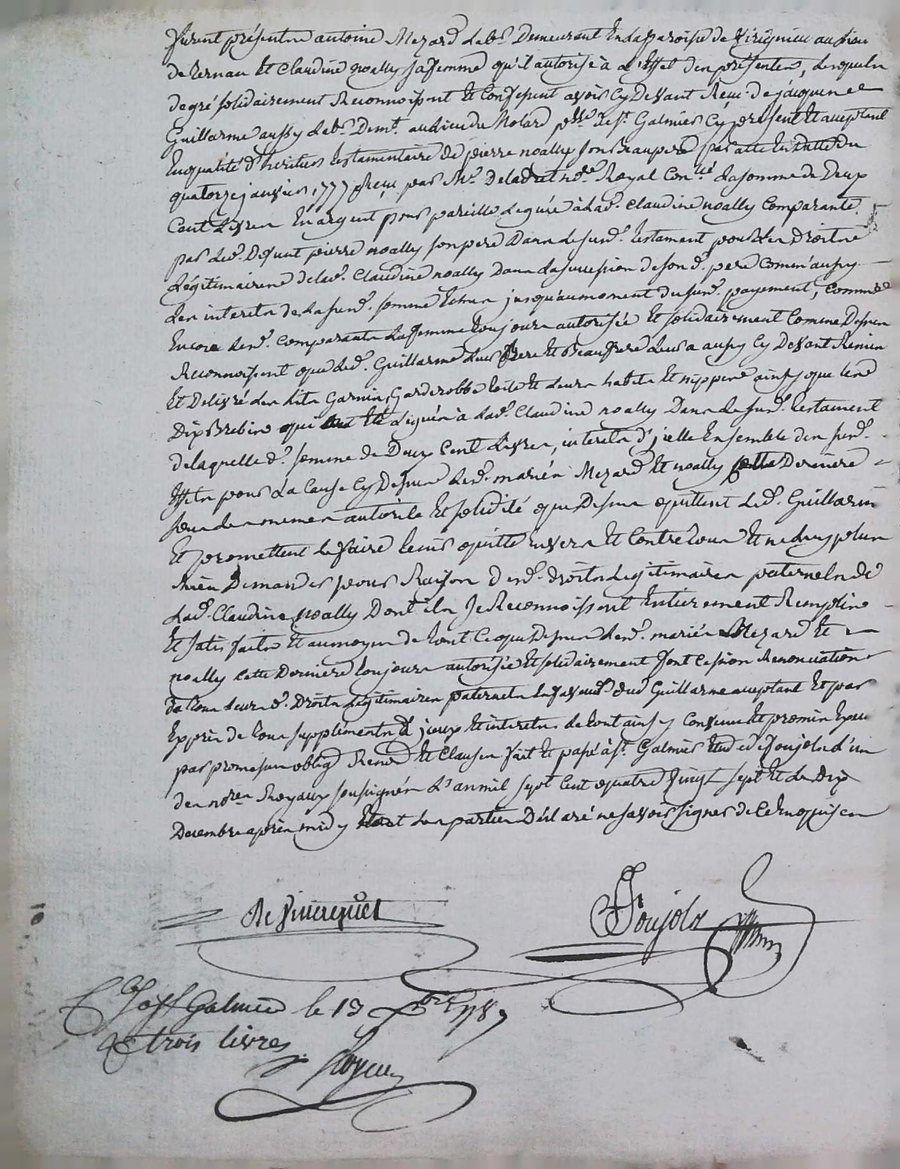 furent présentn antoine Mezard labr. Demeurant En la paroisse de Virignieu au lieu
de Vernau Et Claudine noally sa femme qu'il autorise à l'Effet den présenten, lesqueln
de gré solidairement Reconnoissent Et Confessent avoir Cy Devant Reçu de jacquen
Guillarme aussy labr. Demt. au lieu du Molard psse. de st. Galmier Cy présent Et acceptant
En qualité d'héritier testamentaire de pierre noally son Beaupere par acte En datte du
quatorze janvier 1777 Reçu par Me. Royal la somme de Deux
Cent livren En argent pour pareille léguée à lad. Claudine noally Comparante
par led. Defunt pierre noally son pere Dann le susd. testament pour sen Droitn
légitimairen de lad. Claudine noally Dann la succession de sond. pere Comm'aussy
len interetn de la susd. somme Echun jusqu'au moment du susd. payement, Comme
Encore lesd. Comparantn la femme toujourn autorisée Et solidairement Comme Dessun
Reconnoissent que led. Guillarme leur frere Et Beaufrere leur a aussy Cy Devant Remin
Et Delivré den litn Garnin, Garderobbe toile Et leurn habitn Et nippen ainsy que len
Dix Brebin qui Eté léguén à lad. Claudine noally Dann le susd. testament
de laquelle d. somme de Deux Cent livren, interetn d'jcelle Ensemble den susd.
Effetn pour la Cause Cy Dessun lesd. marién Mezard Et noally cette Derniere
soun len memen autorité Et solidité que Dessun quittent led. Guillarme
Et promettent le faire tenir quitte Enveru Et Contre toun Et ne luy plun
Rien Demander pour Raison desd. droitn légitimairen paterneln de
lad. Claudine noally Dont iln se Reconnoissent Entierement Remplin
Et satisfaitn Et au moyen de tout Ce que Dessun lesd. marién Mezard Et
noally cette Derniere toujourn autorisée Et solidairement font Cession Renonciation
de toun leurn d. Droitn légitimairen paterneln En faveur dud. Guillarme acceptant Et par
Exprèn de toun supplimentn d'jceux Et interetn de tout ainsy Convenu Et promin
par promessen oblign Renon Et Clausen fait Et passé à st. Galmier Etude de foujoln l'un
den nren Royaux soussignén l'an mil sept Cent quatre Vingt sept Et le Dix
Decembre aprèn midy len partien Déclaré ne savoir signer de Ce Enquisen
foujoln
Cé à st Galmier le 13 xbre 1787
trois livres